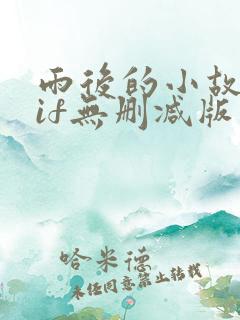 雨後的小故
if無刪減版
哈米德
未经同意禁止转载